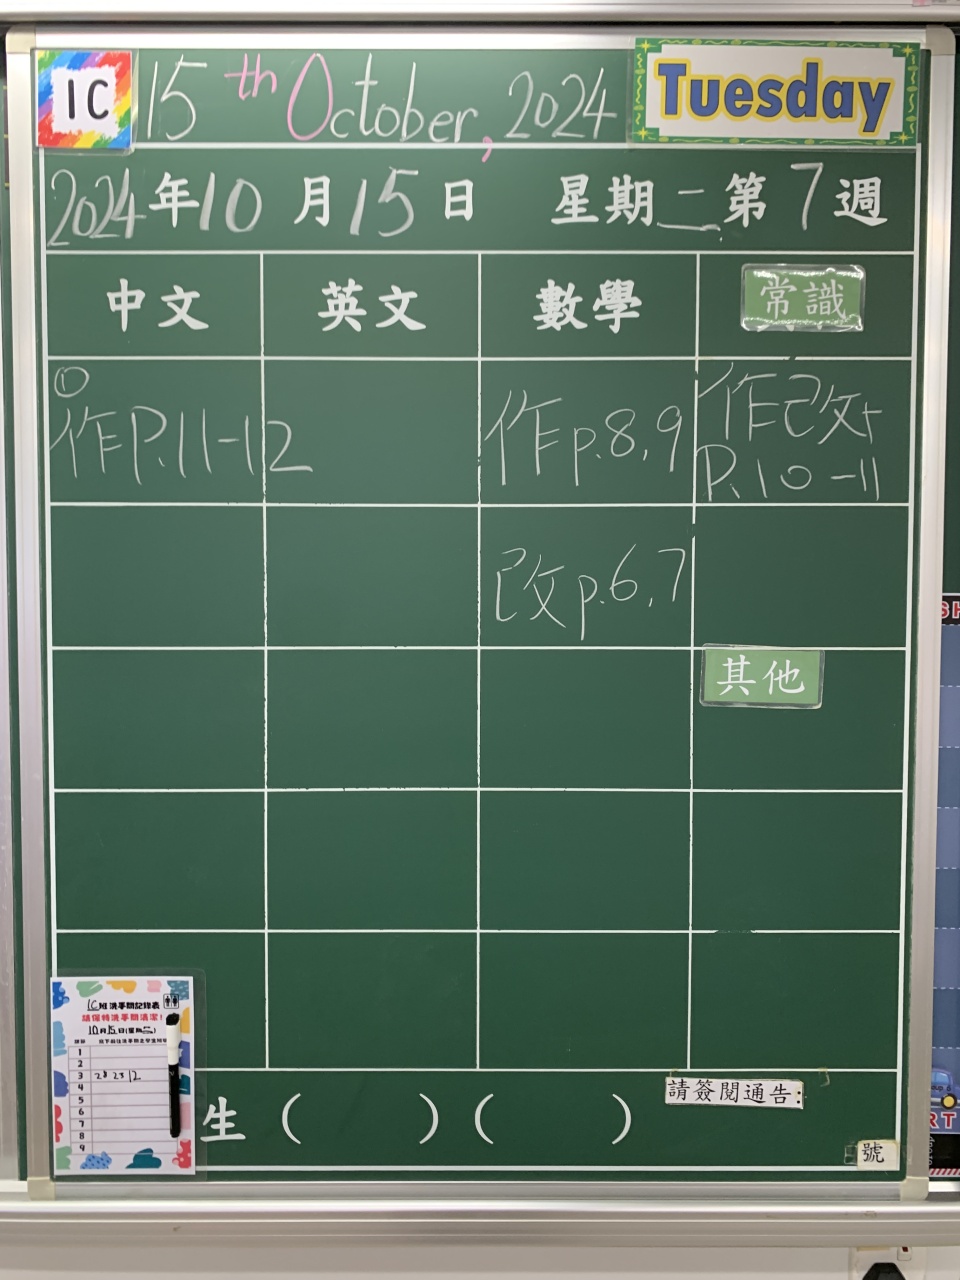 1C 15th October, 2024 Tuesday
2024年10月15日 星期二第7週
中文 英文 數學 常識
①
作P.11-12
作p.8,9
作改+
P.10-11
改p.6,7
其他
1C班洗手間記錄表
請保持洗手間清潔!
10月15日(星期二)
1
2
3 28 23 12
4
5
6
7
8
9
生 ( ) ( )
請簽閱通告:
號